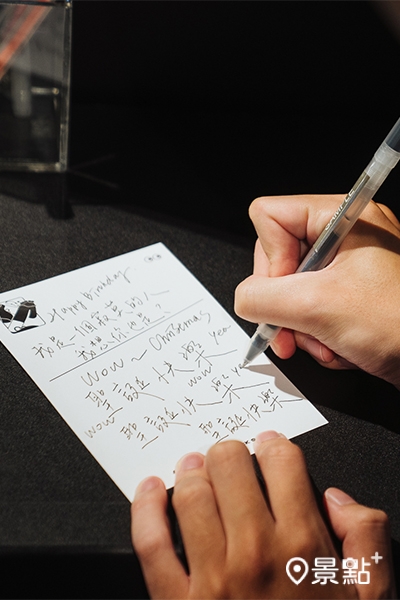 Happy Birthday
我是一個寂寞的人
我想你也是?
Wow~ Christmas
聖誕快樂 Yea
wow 聖誕快樂 wow Ye
聖誕快樂
景點+